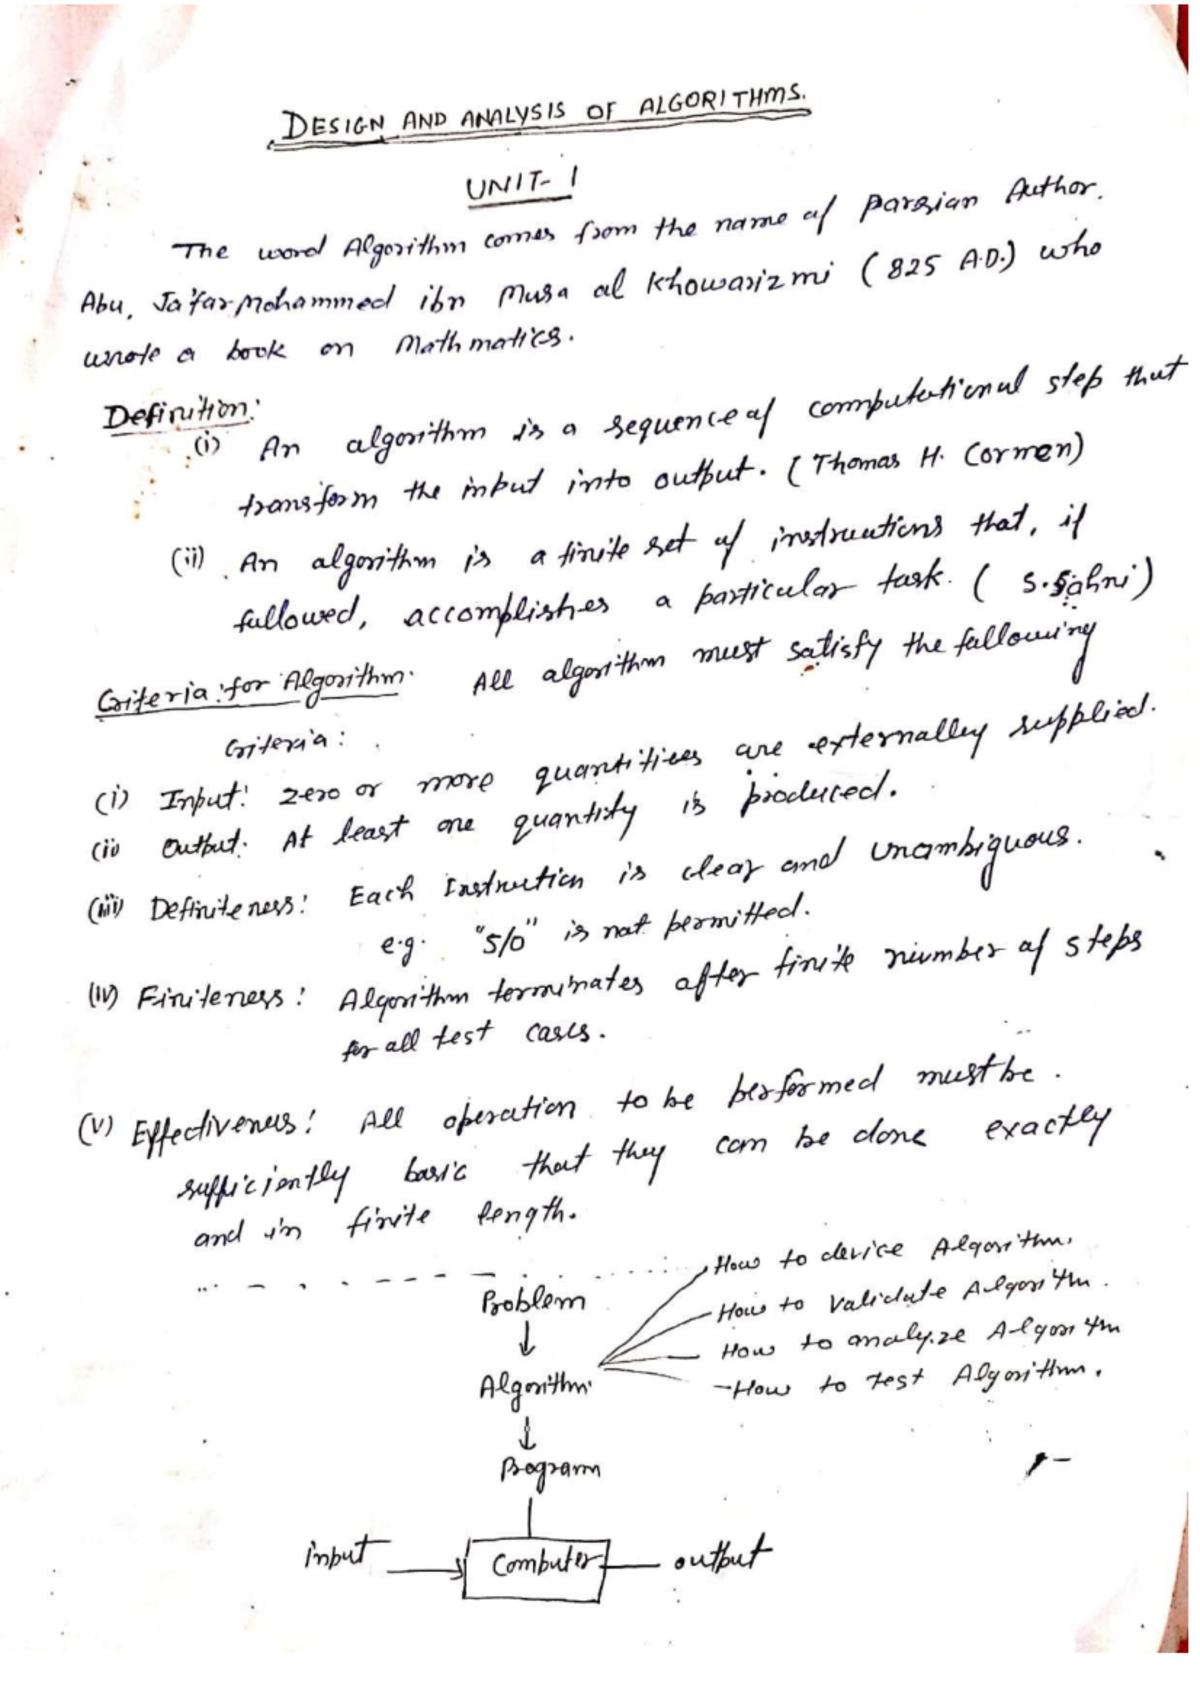 DESIGN AND ANALYSIS OF ALGORITHMS.
UNIT-1
The word Algorithm comes from the name of Parsian Author.
Abu, Ja'far Mohammed ibn Musa al Khowarizmi (825 A.D.) who
wrote a book on Mathmatics.
Definition:
(i) An algorithm is a sequence of computational step that
transform the input into output. (Thomas H. Cormen)
(ii) An algorithm is a finite set of instructions that, if
followed, accomplishes a particular task. (S. Sahni)
Criteria for Algorithm. All algorithm must satisfy the following
Criteria:
(i) Input: zero or more quantities are externally supplied.
(ii) Output: At least one quantity is produced.
(iii) Definiteness: Each Instruction is clear and unambiguous.
e.g. "5/0" is not permitted.
(iv) Finiteness: Algorithm terminates after finite number of steps
for all test cases.
(v) Effectiveness: All operation to be performed must be.
sufficiently basic that they can be done exactly
and in finite length.
Problem
How to device Algorithm.
How to validate Algorithm.
How to analyze Algorithm
Algorithm
How to test Algorithm.
Program
input
Computer
output